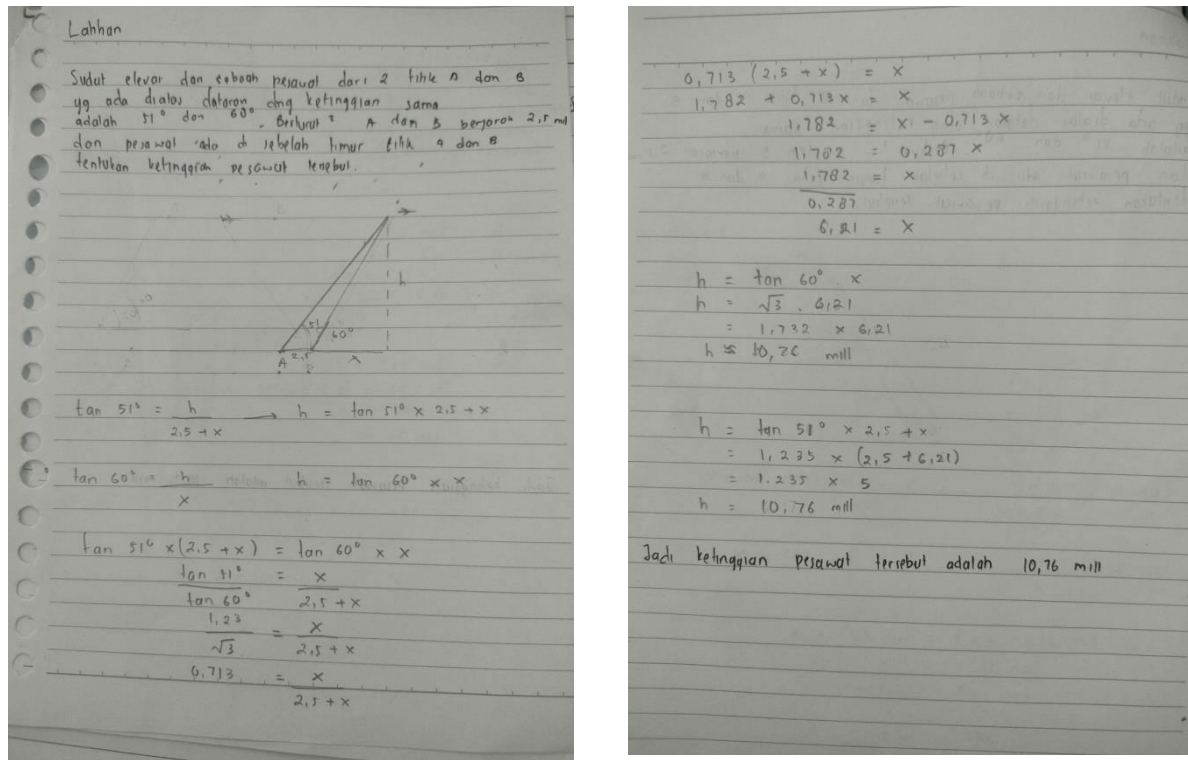 Latihan
Sudut elevasi dan sebuah pesawat dari 2 titik A dan B
yg ada diatas dataran dng ketinggian sama
adalah 51° dan 60°. Berturut² A dan B berjarak 2,5 mil
dan pesawat ada di sebelah timur titik A dan B
tentukan ketinggian pesawat tersebut.
h
51
60°
A 2,5 B x
tan 51° = h / 2,5 + x → h = tan 51° × 2,5 + x
tan 60° = h / x h = tan 60° × x
tan 51° × (2,5 + x) = tan 60° × x
tan 51° / tan 60° = x / 2,5 + x
1,23 / √3 = x / 2,5 + x
0,713 = x / 2,5 + x
0,713 (2,5 + x) = x
1,782 + 0,713 x = x
1,782 = x - 0,713 x
1,782 = 0,287 x
1,782 / 0,287 = x
6,21 = x
h = tan 60° . x
h = √3 . 6,21
= 1,732 × 6,21
h ≈ 10,76 mill
h = tan 51° × 2,5 + x
= 1,235 × (2,5 + 6,21)
= 1.235 × 5
h = 10,76 mill
Jadi ketinggian pesawat tersebut adalah 10,76 mill